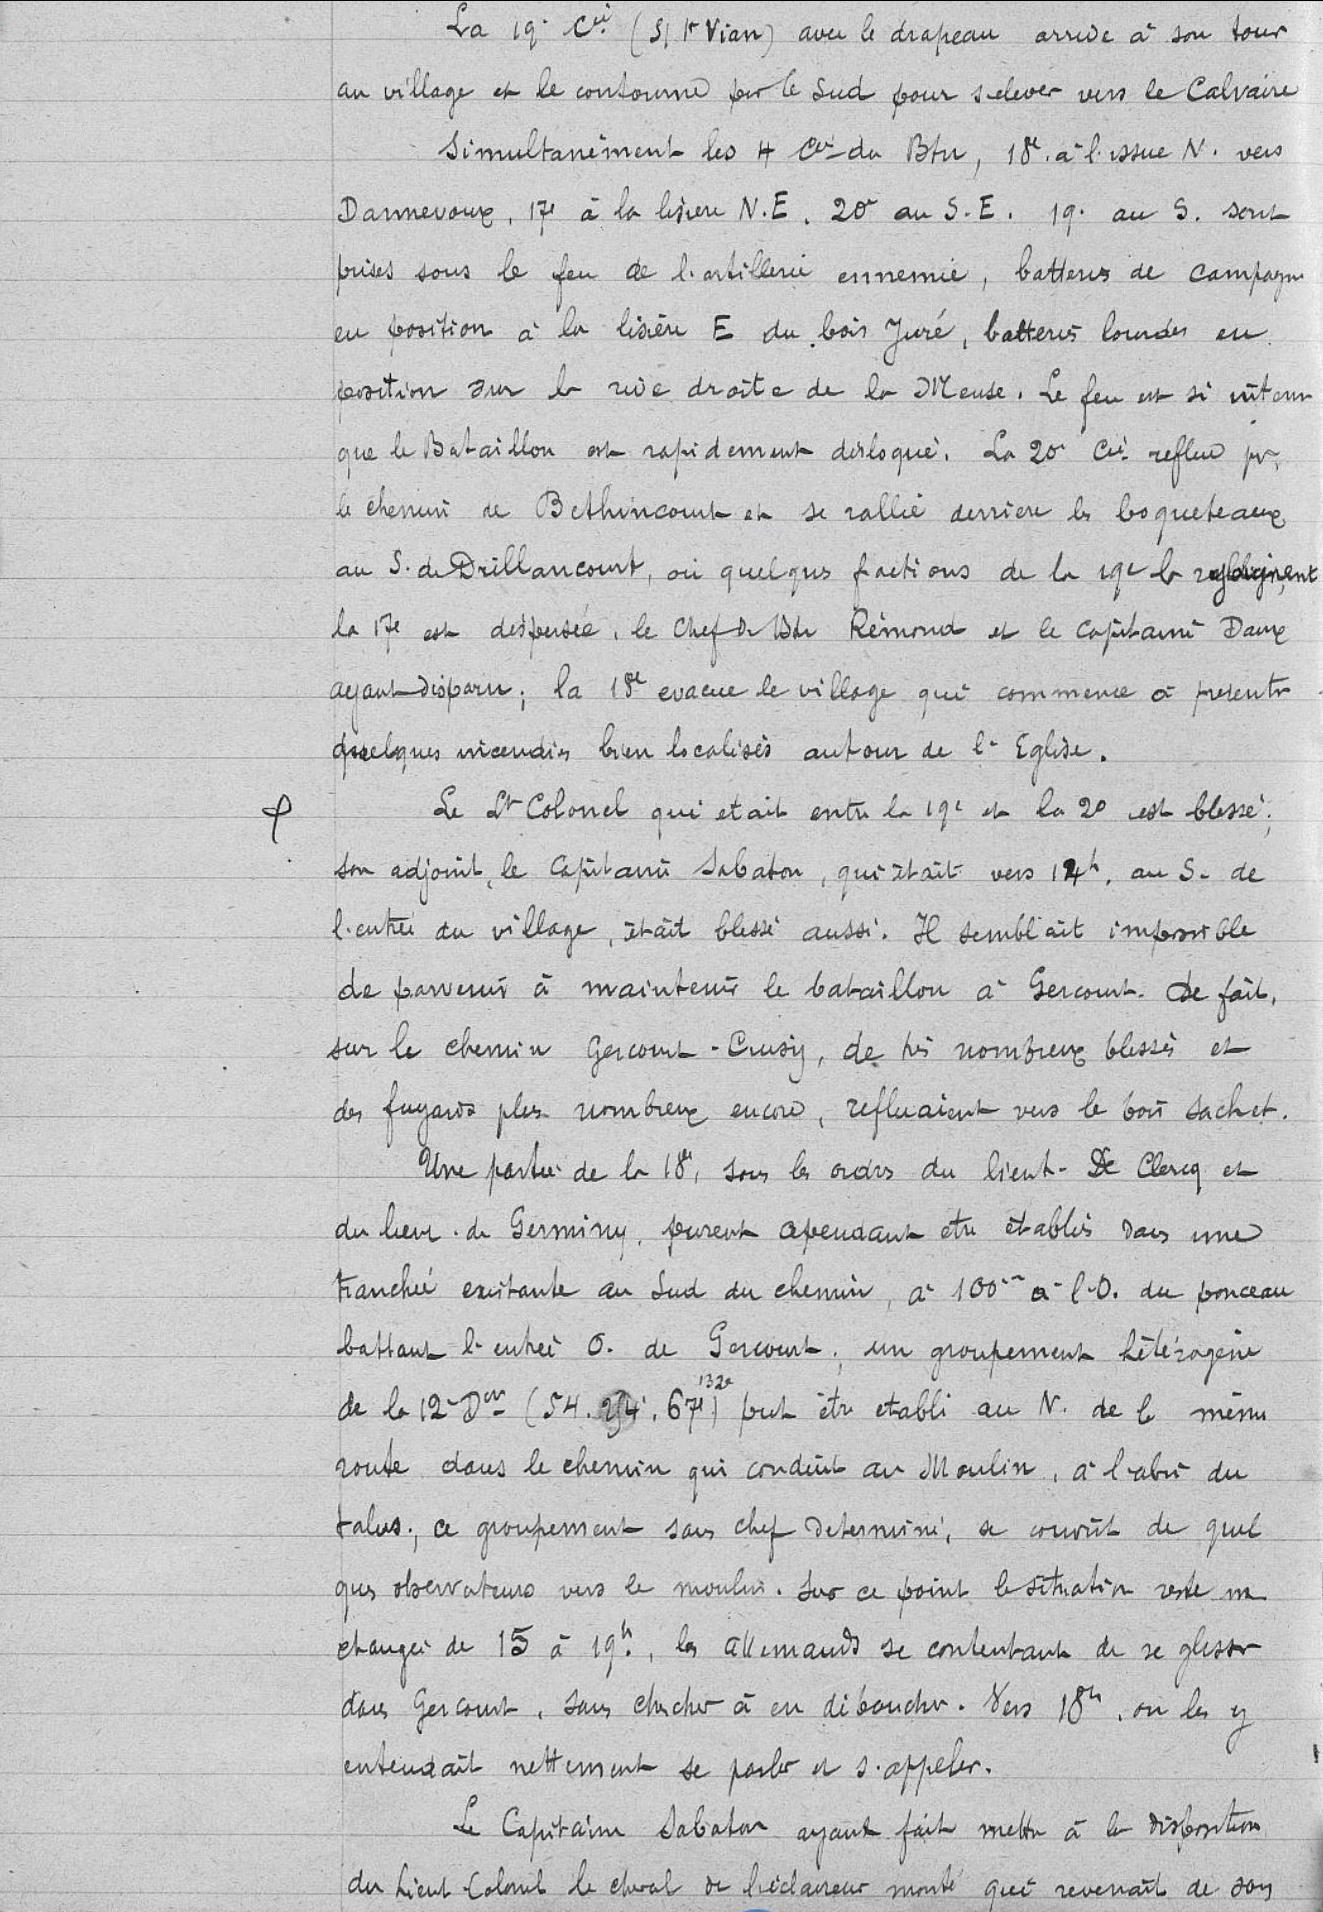 La 19e Cie (S/Lt Vian) avec le drapeau arrive à son tour
au village et le contourne par le Sud pour s'elever vers le Calvaire
Simultanément les 4 Cies du Btn, 18e à l'issue N. vers
Dannevoux, 17e à la lisiere N.E, 20e au S.E. 19e au S. sont
prises sous le feu de l'artillerie ennemie, batteries de campagne
en position à la lisière E du bois Juré, batteries lourdes en
position sur la rive droite de la Meuse. Le feu est si intense
que le Bataillon est rapidement disloqué. La 20e Cie reflue par
le chemin de Bethincourt et se rallie derriere les boqueteaux
au S. de Drillancourt, où quelques fractions de la 19e la rejoignent
la 17e est dispersée, le Chef de Btn Rémond et le capitaine Daux
ayant disparu; la 18e evacue le village qui commence à presenter
quelques incendies bien localisés autour de l'Eglise.
Le Lt Colonel qui etait entre la 19e et la 20 est blessé;
son adjoint, le Capitaine Sabaton, qui était vers 14h, au S. de
l'entrée du village, était blessé aussi. Il semblait impossible
de parvenir à maintenir le bataillon à Gercourt. De fait,
sur le chemin Gercourt - Cuisy, de très nombreux blessés et
des fuyards plus nombreux encore, refluaient vers le bois Sachet.
Une partie de la 18e, sous les ordres du lieut. De Clercq et
du lieut. de Germiny, purent cependant etre établis dans une
tranchée existante au Sud du chemin, à 100m à l'O. du ponceau
battant l'entrée O. de Gercourt; un groupement hétérogène
de la 12e Don (54. 67e 132e) put être etabli au N. de la même
route dans le chemin qui conduit au Moulin, à l'abri du
talus; ce groupement sans chef determiné, se couvrit de quel
ques observateurs vers le moulin. Sur ce point la situation reste in
changée de 15 à 19h, les allemands se contentant de se glisser
dans Gercourt, sans chercher à en déboucher. Vers 18h, on les y
entendait nettement se parler et s'appeler.
Le Capitaine Sabaton ayant fait mettre à la disposition
du Lieut-Colonel le cheval de l'éclaireur monté qui revenait de son